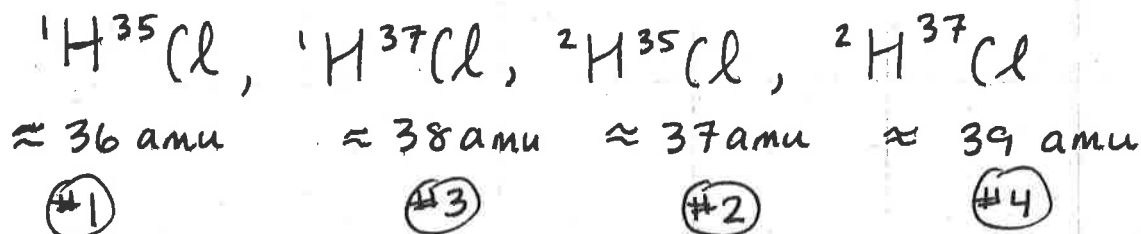 ¹H³⁵Cl, ¹H³⁷Cl, ²H³⁵Cl, ²H³⁷Cl
≈ 36 amu ≈ 38 amu ≈ 37 amu ≈ 39 amu
#1 #3 #2 #4